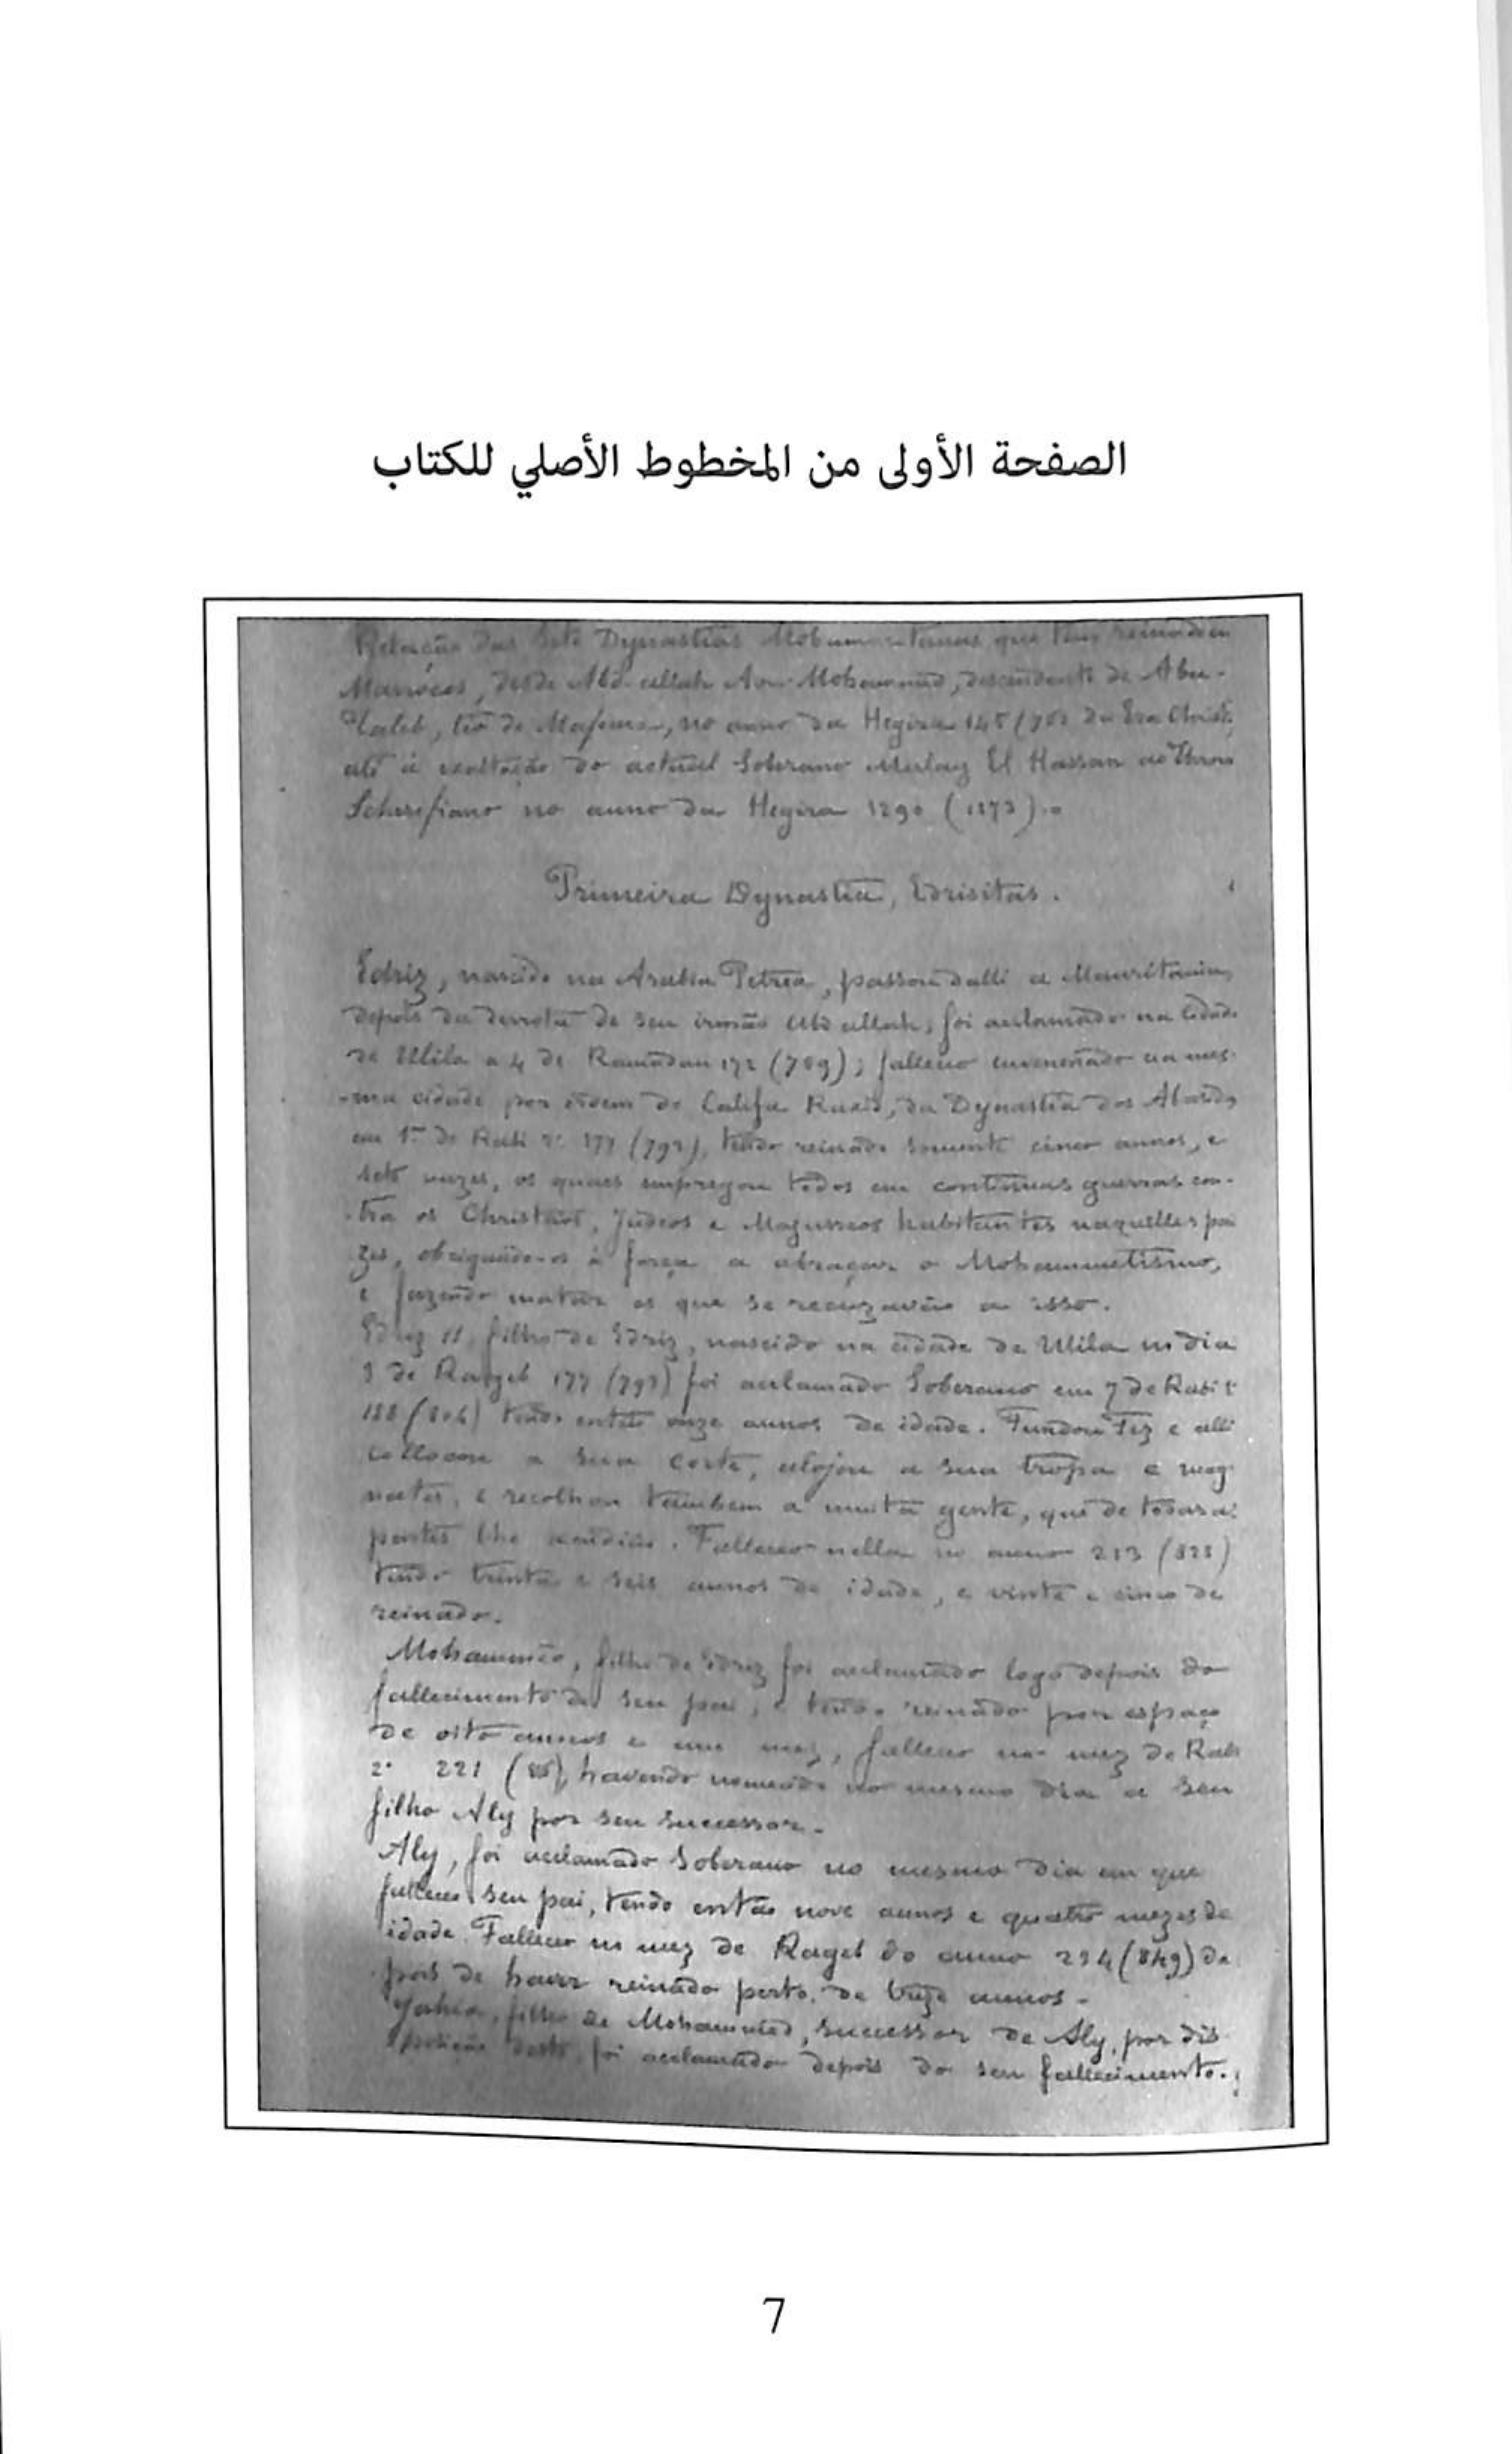 الصفحة الأولى من المخطوط الأصلي للكتاب
Relação das Sete Dynastias que tem reinado em
Marrocos, desde Abd-allah Mohammed, descendente de Abu-
Taleb, tio de Mafoma, no anno da Hegira 145 (762 da Era Christ.
até á exaltação do actual Soberano Mulay El Hassan ao Throno
Scherifiano no anno da Hegira 1290 (1873).
Primeira Dynastia, Edrisitas.
Edriz, nascido na Arabia Petrea, passou dalli a Mauritania,
depois da derrota de seu irmão Abd allah; foi acclamado na cidade
de Ulila a 4 de Ramadan 172 (789); falleceo envenenado na mes-
-ma cidade por ordem do Califa Raxid, da Dynastia dos
em 1º de Rabi 2º 177 (793), tendo reinado somente cinco annos, e
sete mezes, os quaes empregou todos em continuas guerras con-
-tra os Christãos, Judeos e habitantes naquelles pai
zes, obrigando-os à força a abraçar o Mohammetismo,
e fazendo matar os que se recuzavão a isso.
Edriz II, filho de Edriz, nascido na cidade de Ulila no dia
3 de Rageb 177 (793) foi acclamado Soberano em 7 de Rabi 1º
188 (804) tendo então onze annos de idade. Fundou Fez e alli
collocou a sua corte, alojou a sua tropa e mag-
natas, e recolheu tambem a muita gente, que de todas as
partes lhe acudião. Falleceo nella no anno 213 (828)
tendo trinta e seis annos de idade, e vinte e cinco de
reinado.
Mohammed, filho de Edriz foi acclamado logo depois do
fallecimento de seu pai, e tendo reinado por espaço
de oito annos e um mez, falleceo no mez de Rabi
2º 221 havendo nomeado no mesmo dia a seu
filho Aly por seu successor.
Aly, foi acclamado Soberano no mesmo dia em que
falleceo seu pai, tendo então nove annos e quatro mezes de
idade. Falleceo no mez de Rageb do anno 234 (849) de
pois de haver reinado perto de treze annos.
Yahia, filho de Mohammed, successor de Aly, por dis-
posição deste, foi acclamado depois do seu fallecimento.
7